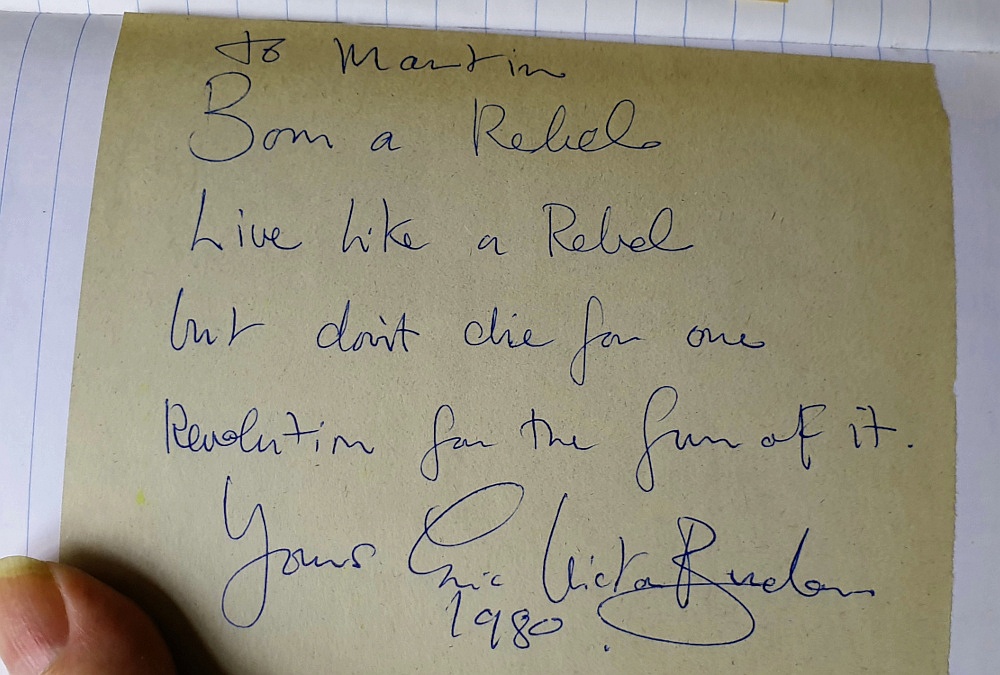 To Martin
Born a Rebel
Live like a Rebel
but don't die for one
Revolution for the fun of it.
Yours Eric Victor Burdon
1980.